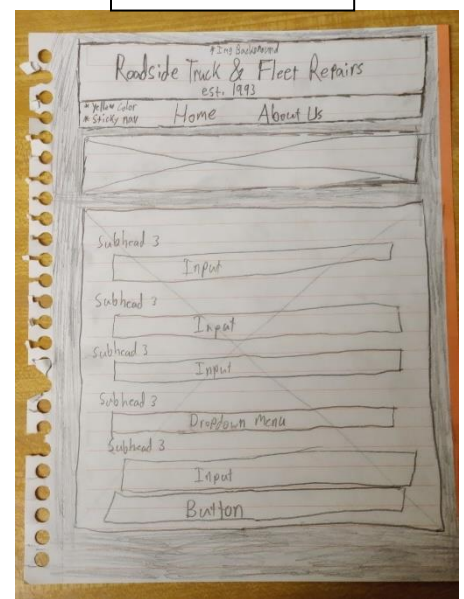 * Img Background
Roadside Truck & Fleet Repairs
est. 1993
* Yellow Color
* Sticky nav
Home About Us
Subhead 3
Input
Subhead 3
Input
Subhead 3
Input
Subhead 3
Dropdown Menu
Subhead 3
Input
Button